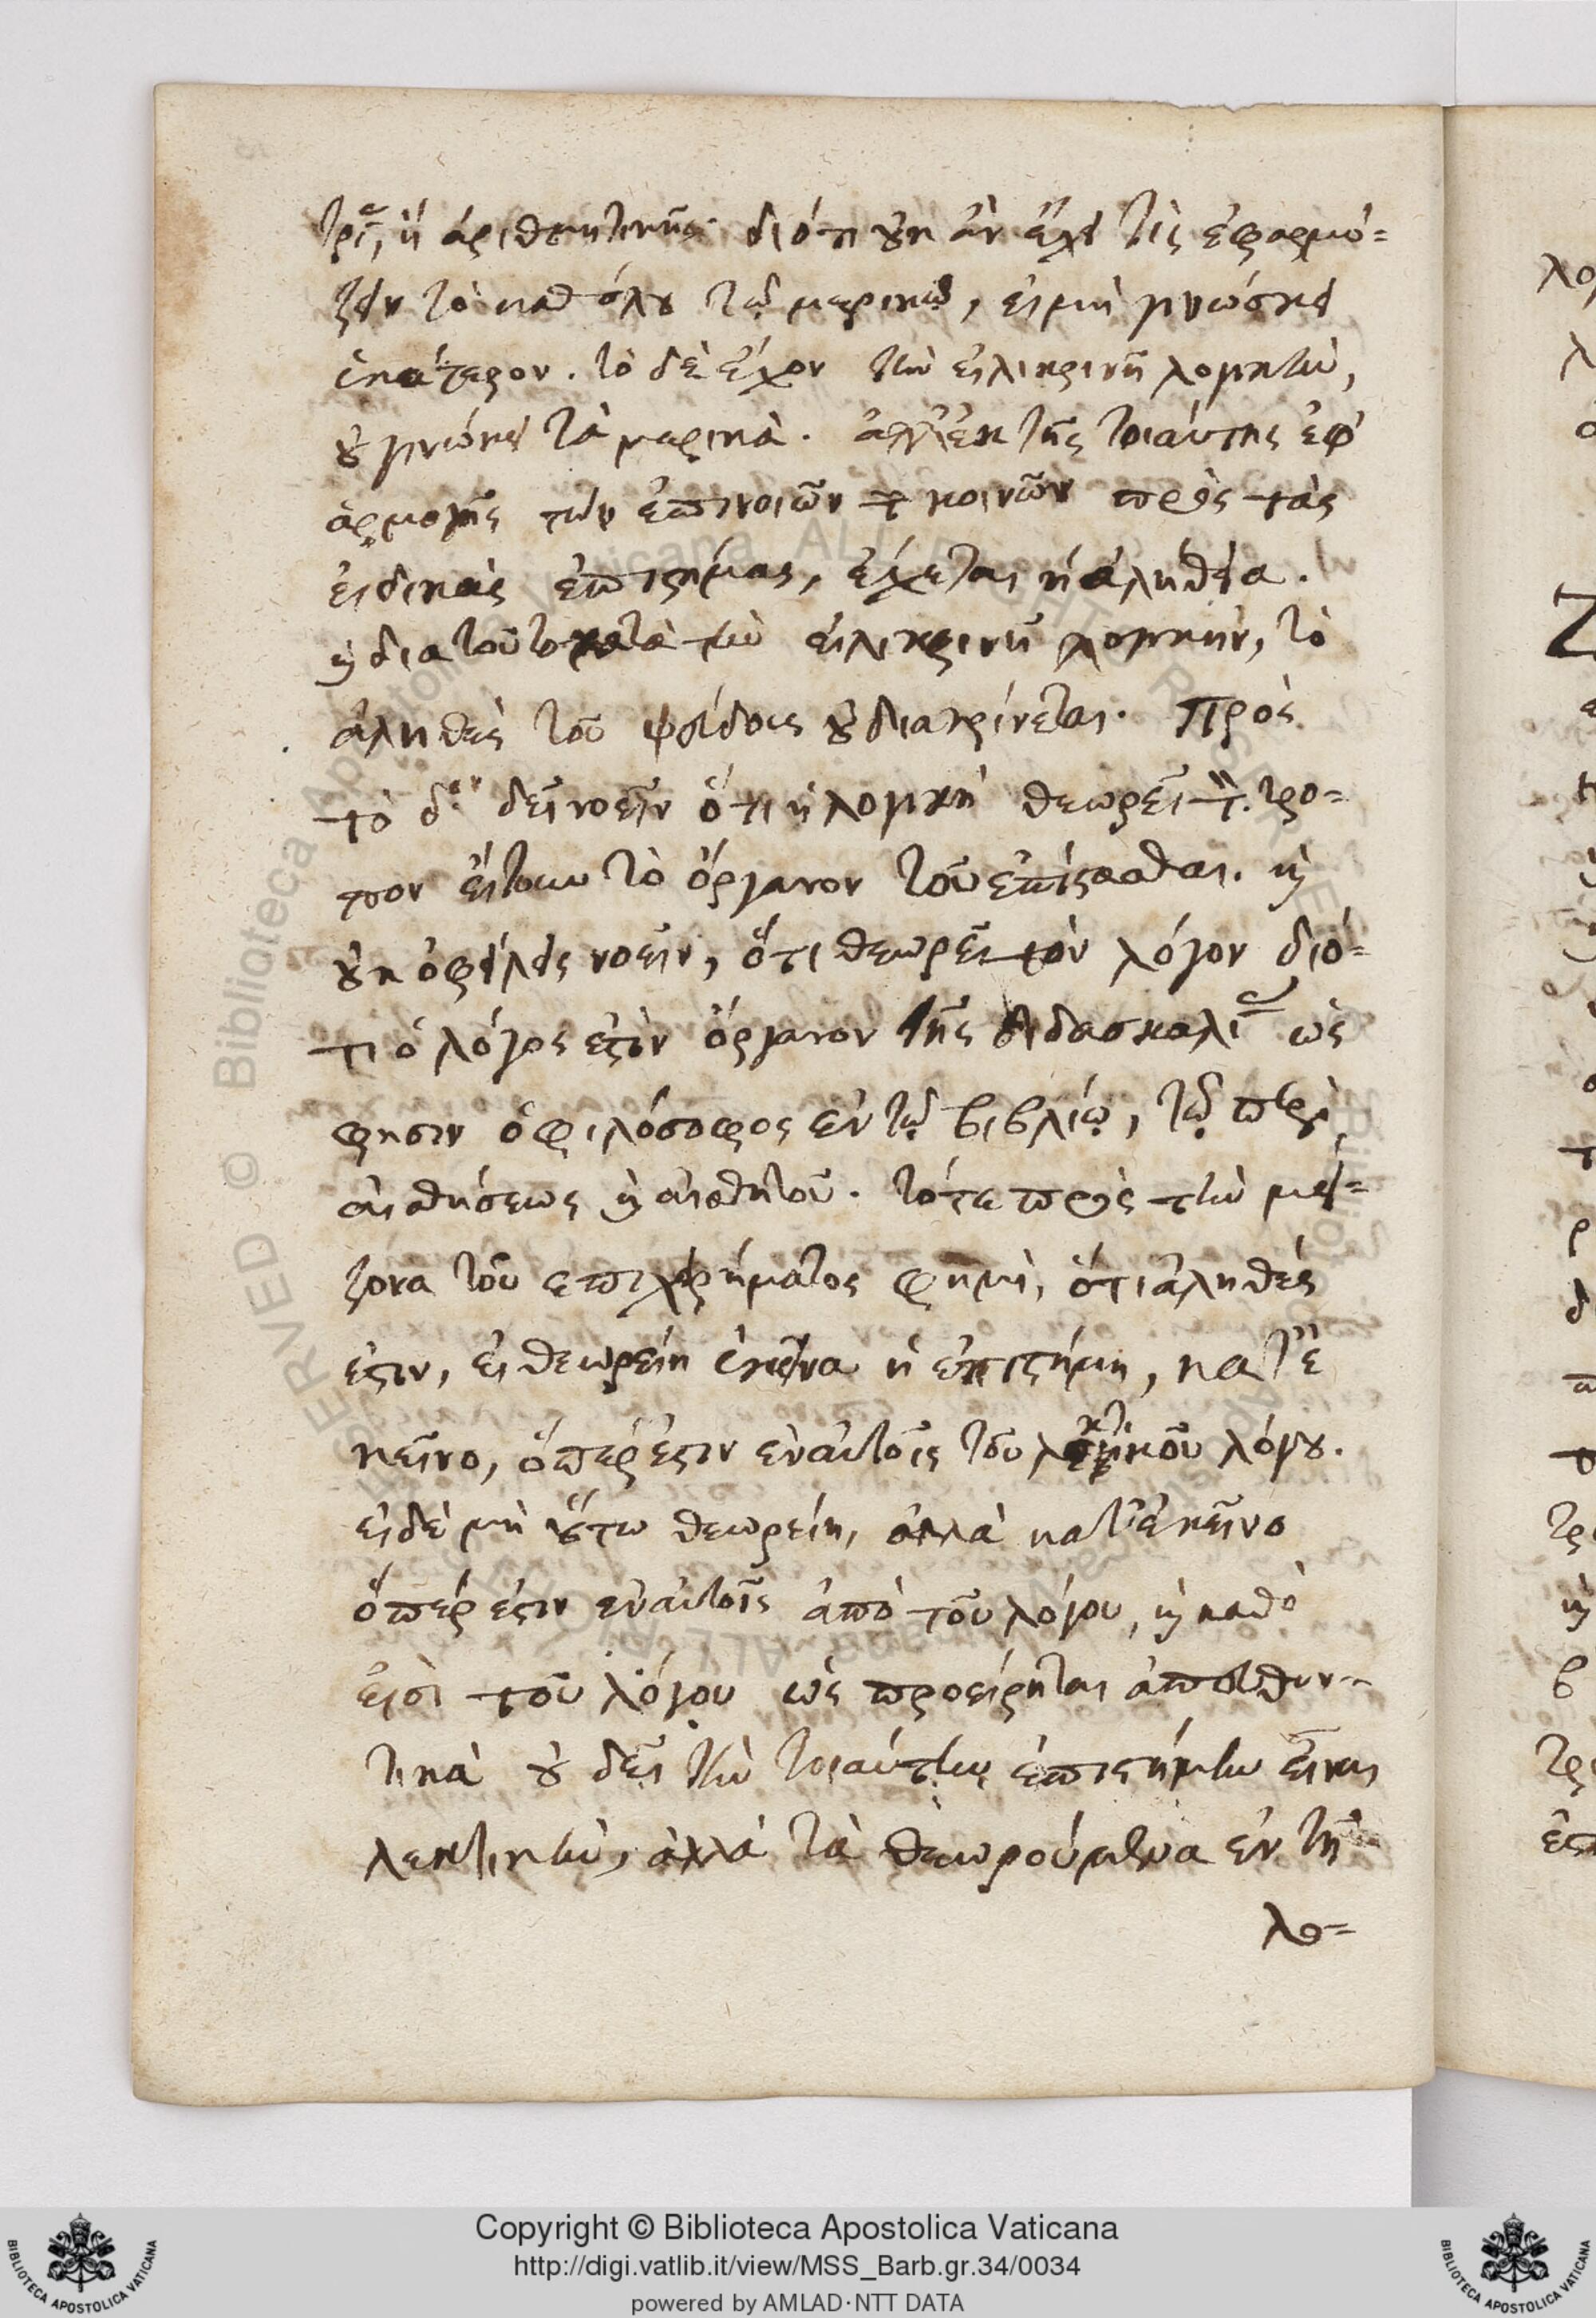 τρί(ας), ἢ ἀριθμητικῆς· διότι οὐκ ἂν ἔχει τὶς ἐφαρμό=
ζειν τὸ καθόλου τῷ μερικῷ, εἰμὴ γνώσκει
ἑκάτερον. τὸ δὲ ἔχον τὴν εἰλικρινῆ λογικὴν,
οὐ γνώκει τὰ μερικὰ. ἀλλ' ἐκ τῆς τοιαύτης ἐφ'
ἁρμογῆς τῶν ἐπινοιῶν τ κοινῶν πρὸς τὰς
εἰδικὰς ἐπιστήμας, ἔχεται ἡ ἀλήθεια.
καὶ διατοῦτο κατὰ τὴν εἰλικρινῆ λογικὴν, τὸ
ἀληθὲς τοῦ ψεύδους οὐ διακρίνεται. Πρὸς
τὸ δ.ον δεῖ νοεῖν ὅτι ἡ λογικὴ θεωρεῖ τ. τρό=
πον εἴτουν τὸ ὄργανον τοῦ ἐπίστασθαι. καὶ
οὐκ ὀφείλεις νοεῖν, ὅτι θεωρεῖ τὸν λόγον διό=
τι ὁ λόγος ἐστὶν ὄργανον τῆς διδασκαλί(ας) ὡς
φησιν ὁ φιλόσοφος ἐν τῷ βιβλίῳ, τῷ περὶ
αἰσθήσεως καὶ αἰσθητοῦ. τότε πρὸς τὴν μεί=
ζονα τοῦ επιχειρήματος φημὶ, ὅτι ἀληθές
ἐστιν, εἰ θεωρείη ἐκεῖνα ἡ ἐπιστήμη, κατ' ἐ
κεῖνο, ὅπερ ἐστιν ἐν αὐτοῖς τοῦ λεκτικοῦ λόγου.
εἰδὲ μὴ οὕτω θεωρείη, ἀλλὰ κατ' ἐκεῖνο
ὅπερ ἐστιν ἐν αὐτοῖς ἀπὸ τοῦ λόγου, καὶ καθὸ
εἰσὶ τοῦ λόγου ὡς προείρηται ἀπευθυν=
τικὰ οὐ δεῖ τὴν τοιαύτην ἐπιστήμην εἶναι
λεκτικὴν, ἀλλὰ τὰ θεωρούμενα ἐν τῇ
λο=
Copyright © Biblioteca Apostolica Vaticana
http://digi.vatlib.it/view/MSS_Barb.gr.34/0034
powered by AMLAD·NTT DATA